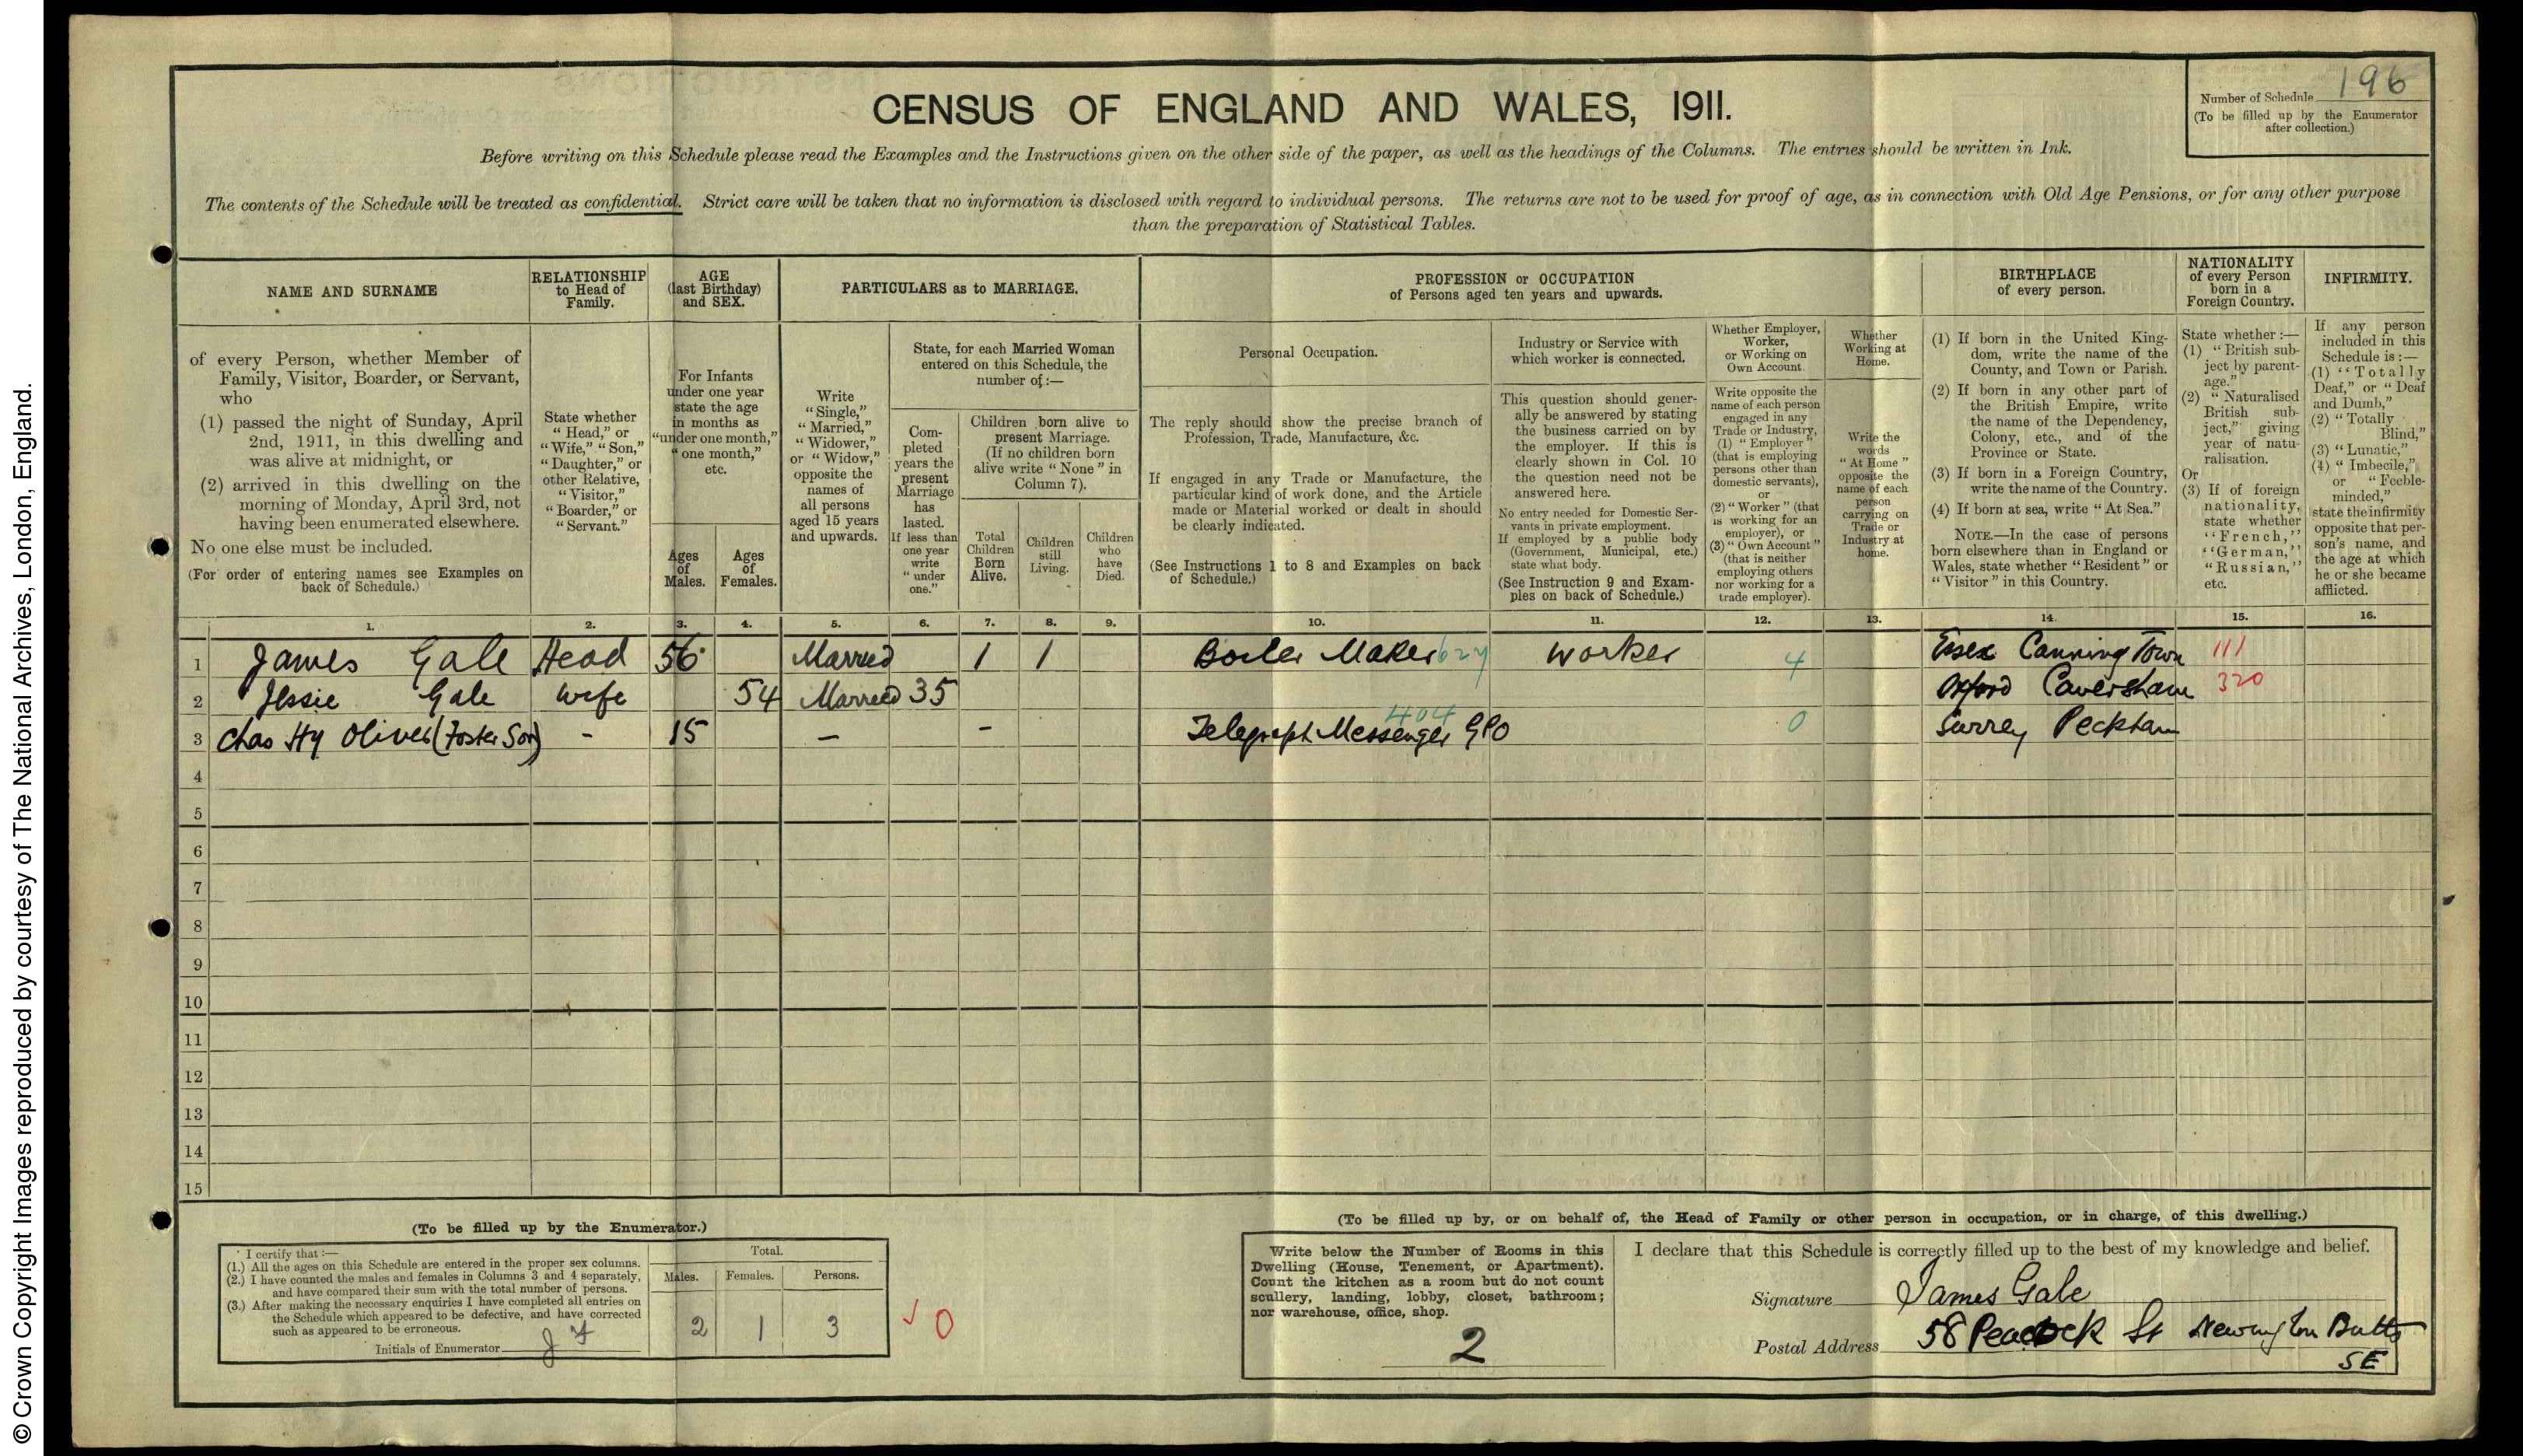 © Crown Copyright Images reproduced by courtesy of The National Archives, London, England.
CENSUS OF ENGLAND AND WALES, 1911.
Number of Schedule 196
(To be filled up by the Enumerator
after collection.)
Before writing on this Schedule please read the Examples and the Instructions given on the other side of the paper, as well as the headings of the Columns. The entries should be written in Ink.
The contents of the Schedule will be treated as confidential. Strict care will be taken that no information is disclosed with regard to individual persons. The returns are not to be used for proof of age, as in connection with Old Age Pensions, or for any other purpose
than the preparation of Statistical Tables.
NAME AND SURNAME
of every Person, whether Member of
Family, Visitor, Boarder, or Servant,
who
(1) passed the night of Sunday, April
2nd, 1911, in this dwelling and
was alive at midnight, or
(2) arrived in this dwelling on the
morning of Monday, April 3rd, not
having been enumerated elsewhere.
No one else must be included.
(For order of entering names see Examples on
back of Schedule.)
RELATIONSHIP
to Head of
Family.
State whether
"Head," or
"Wife," "Son,"
"Daughter," or
other Relative,
"Visitor,"
"Boarder," or
"Servant."
AGE
(last Birthday)
and SEX.
For Infants
under one year
state the age
in months as
"under one month,"
"one month,"
etc.
Ages
of
Males.
Ages
of
Females.
PARTICULARS as to MARRIAGE.
Write
"Single,"
"Married,"
"Widower,"
or "Widow,"
opposite the
names of
all persons
aged 15 years
and upwards.
State, for each Married Woman
entered on this Schedule, the
number of :—
Com-
pleted
years the
present
Marriage
has
lasted.
If less than
one year
write
"under
one."
Children born alive to
present Marriage.
(If no children born
alive write "None" in
Column 7).
Total
Children
Born
Alive.
Children
still
Living.
Children
who
have
Died.
PROFESSION or OCCUPATION
of Persons aged ten years and upwards.
Personal Occupation.
The reply should show the precise branch of
Profession, Trade, Manufacture, &c.
If engaged in any Trade or Manufacture, the
particular kind of work done, and the Article
made or Material worked or dealt in should
be clearly indicated.
(See Instructions 1 to 8 and Examples on back
of Schedule.)
Industry or Service with
which worker is connected.
This question should gener-
ally be answered by stating
the business carried on by
the employer. If this is
clearly shown in Col. 10
the question need not be
answered here.
No entry needed for Domestic Ser-
vants in private employment.
If employed by a public body
(Government, Municipal, etc.)
state what body.
(See Instruction 9 and Exam-
ples on back of Schedule.)
Whether Employer,
Worker,
or Working on
Own Account.
Write opposite the
name of each person
engaged in any
Trade or Industry,
(1) "Employer"
(that is employing
persons other than
domestic servants),
or
(2) "Worker" (that
is working for an
employer), or
(3) "Own Account"
(that is neither
employing others
nor working for a
trade employer).
Whether
Working at
Home.
Write the
words
"At Home"
opposite the
name of each
person
carrying on
Trade or
Industry at
home.
BIRTHPLACE
of every person.
(1) If born in the United King-
dom, write the name of the
County, and Town or Parish.
(2) If born in any other part of
the British Empire, write
the name of the Dependency,
Colony, etc., and of the
Province or State.
(3) If born in a Foreign Country,
write the name of the Country.
(4) If born at sea, write "At Sea."
NOTE.—In the case of persons
born elsewhere than in England or
Wales, state whether "Resident" or
"Visitor" in this Country.
NATIONALITY
of every Person
born in a
Foreign Country.
State whether :—
(1) "British sub-
ject by parent-
age."
(2) "Naturalised
British sub-
ject," giving
year of natu-
ralisation.
Or
(3) If of foreign
nationality,
state whether
"French,"
"German,"
"Russian,"
etc.
INFIRMITY.
If any person
included in this
Schedule is :—
(1) "Totally
Deaf," or "Deaf
and Dumb,"
(2) "Totally
Blind,"
(3) "Lunatic,"
(4) "Imbecile,"
or "Feeble-
minded,"
state the infirmity
opposite that per-
son's name, and
the age at which
he or she became
afflicted.
1. 2. 3. 4. 5. 6. 7. 8. 9. 10. 11. 12. 13. 14. 15. 16.
1 James Gale Head 56 Married 1 1 Boiler Maker 627 Worker 4 Essex Canning Town 111
2 Jessie Gale Wife 54 Married 35 Oxford Caversham 320
3 Chas Hy Oliver (Foster Son) - 15 — - Telegraph Messenger GPO 404 0 Surrey Peckham
4
5
6
7
8
9
10
11
12
13
14
15
(To be filled up by the Enumerator.)
I certify that :—
(1.) All the ages on this Schedule are entered in the proper sex columns.
(2.) I have counted the males and females in Columns 3 and 4 separately,
and have compared their sum with the total number of persons.
(3.) After making the necessary enquiries I have completed all entries on
the Schedule which appeared to be defective, and have corrected
such as appeared to be erroneous.
Initials of Enumerator
Total.
Males. Females. Persons.
2 1 3 ✓ 0
(To be filled up by, or on behalf of, the Head of Family or other person in occupation, or in charge, of this dwelling.)
Write below the Number of Rooms in this
Dwelling (House, Tenement, or Apartment).
Count the kitchen as a room but do not count
scullery, landing, lobby, closet, bathroom;
nor warehouse, office, shop.
2
I declare that this Schedule is correctly filled up to the best of my knowledge and belief.
Signature James Gale
Postal Address 58 Peacock St Newington Butts
SE